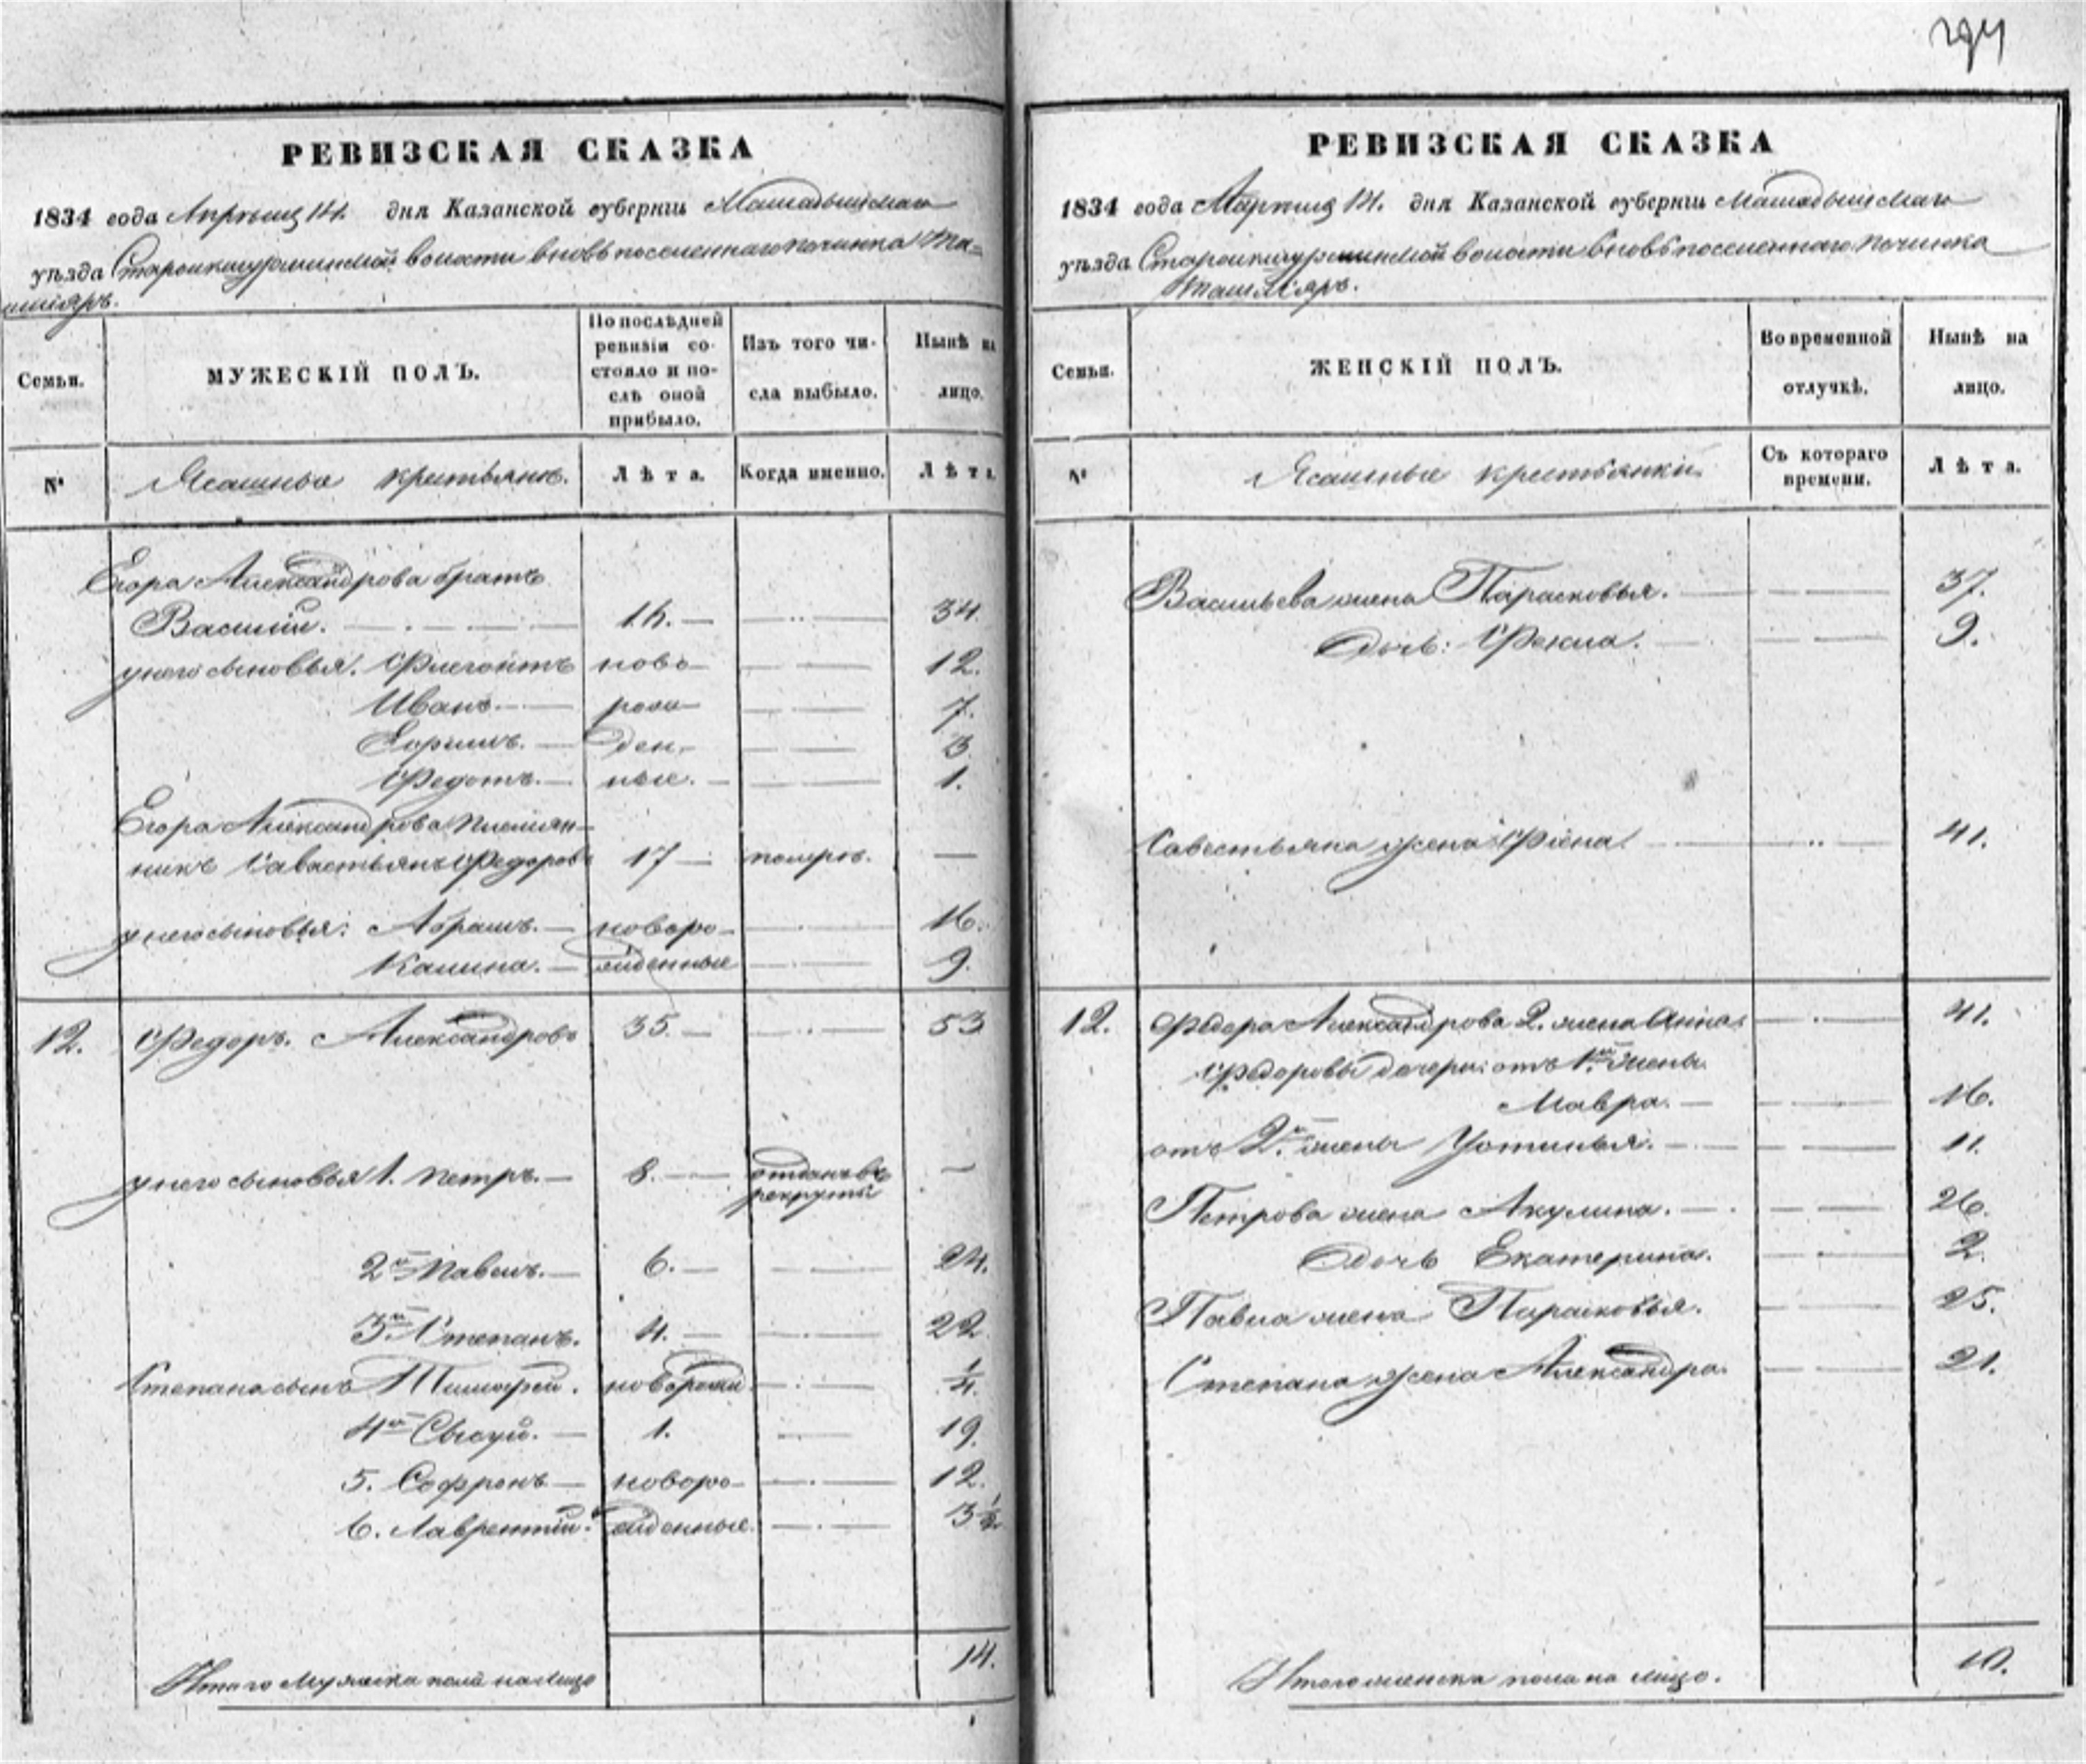 294
РЕВИЗСКАЯ СКАЗКА
1834 года Апрѣля 14. дня Казанской губерніи Мамадышскаго
уѣзда Староикшурминской волости вновь поселеннаго починка Та=
шляръ.
Семьи.
МУЖЕСКІЙ ПОЛЪ.
По послѣдней ревизіи со-
стояло и по-
слѣ оной
прибыло.
Изъ того чи-
сла выбыло.
Нынѣ на
лицо.
№
Ясашные крестьяне.
Лѣта.
Когда именно.
Лѣта.
Егора Александрова братъ
Василій. 16. 34.
у него сыновья. Флегонтъ ново 12.
Иванъ. рож 7.
ден- 3.
Федотъ. ные. 1.
Егора Александрова племян-
никъ Савастьянъ Федоровъ 17 померъ. —
у него сыновья: Абрамъ. новоро- 16.
Калина. жденные 9.
12. Федоръ. Александровъ 35. 53
у него сыновья 1. Петръ. 8. отданъ въ рекруты —
2й Павелъ. 6. 24.
3й Степанъ. 4. 22
Степана сынъ Тимофей. новорожд. 1/4.
4й Сысуй. 1. 19.
5. Софронъ новоро- 12.
6. Лаврентій. жденные. 3 1/2.
Итого мужеска пола на лицо 14.
РЕВИЗСКАЯ СКАЗКА
1834 года 14. дня Казанской губерніи Мамадышскаго
уѣзда Староикшурминской волости вновь поселеннаго починка
Ташляръ.
Семьи.
ЖЕНСКІЙ ПОЛЪ.
Во временной
отлучкѣ.
Нынѣ на
лицо.
№
Ясашные крестьянки
Съ котораго
времени.
Лѣта.
Васильева жена Парасковья. 37.
дочь: Фекла. 9.
Савестьяна жена 41.
12. Федора Александрова 2. жена Анна. 41.
Федоровы дочери: отъ 1й жены
Мавра. 16.
отъ 2й жены Устинья. 11.
Петрова жена Акулина. 26.
дочь Екатерина. 2.
Павла жена Парасковья. 25.
Степана жена Александра. 21.
Итого женска пола на лицо. 10.